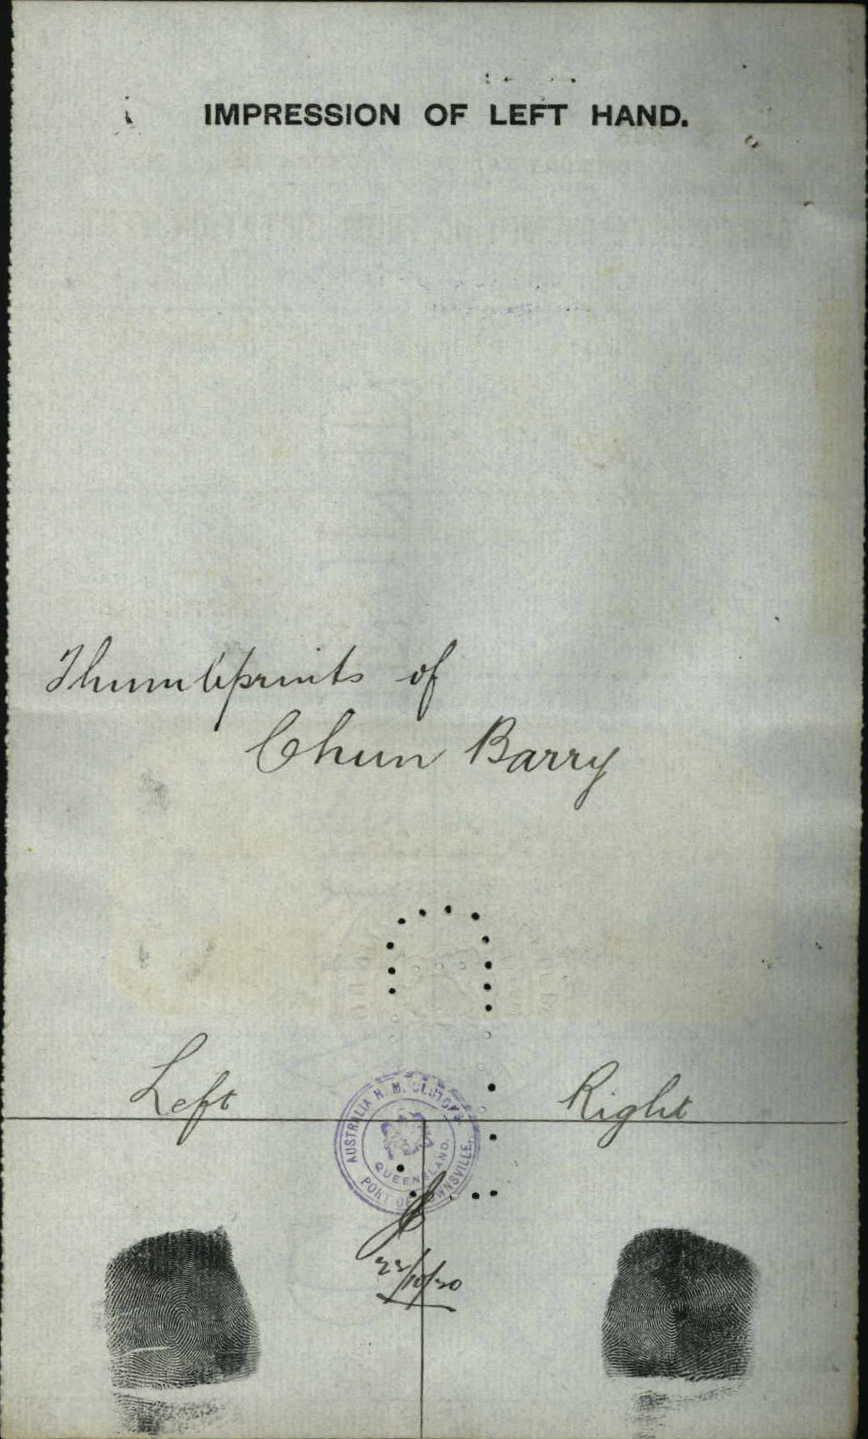 IMPRESSION OF LEFT HAND.
Thumbprints of
Chun Barry
Left
Right
AUSTRALIA H. M. CUSTOMS
QUEENSLAND.
PORT OF TOWNSVILLE.
22/10/20